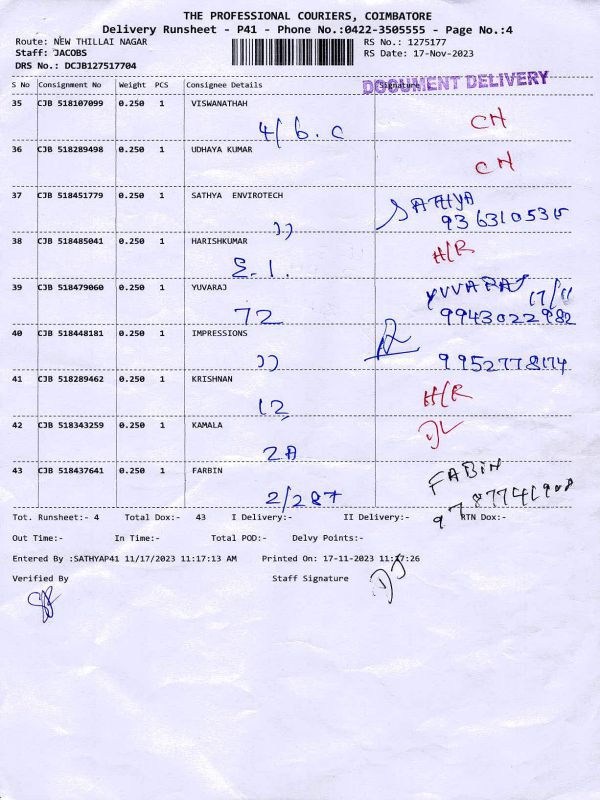 THE PROFESSIONAL COURIERS, COIMBATORE
Delivery Runsheet - P41 - Phone No.:0422-3505555 - Page No.:4
Route: NEW THILLAI NAGAR RS No.: 1275177
Staff: JACOBS RS Date: 17-Nov-2023
DRS No.: DCJB127517704
DOCUMENT DELIVERY
S No Consignment No Weight PCS Consignee Details Signature
35 CJB 518107099 0.250 1 VISWANATHAH
4/6.C CH
36 CJB 518289498 0.250 1 UDHAYA KUMAR
CH
37 CJB 518451779 0.250 1 SATHYA ENVIROTECH SATHYA
)) 9363105315
38 CJB 518485041 0.250 1 HARISHKUMAR H/R
E.1.
39 CJB 518479060 0.250 1 YUVARAJ YUVARAJ 17/11
72 9943022982
40 CJB 518448181 0.250 1 IMPRESSIONS
)) 9952778174
41 CJB 518289462 0.250 1 KRISHNAN H/R
12
42 CJB 518343259 0.250 1 KAMALA DL
2A
43 CJB 518437641 0.250 1 FARBIN FABIN
2/287
Tot. Runsheet:- 4 Total Dox:- 43 I Delivery:- II Delivery:- RTN Dox:-
Out Time:- In Time:- Total POD:- Delvy Points:-
Entered By :SATHYAP41 11/17/2023 11:17:13 AM Printed On: 17-11-2023 11:17:26
Verified By Staff Signature